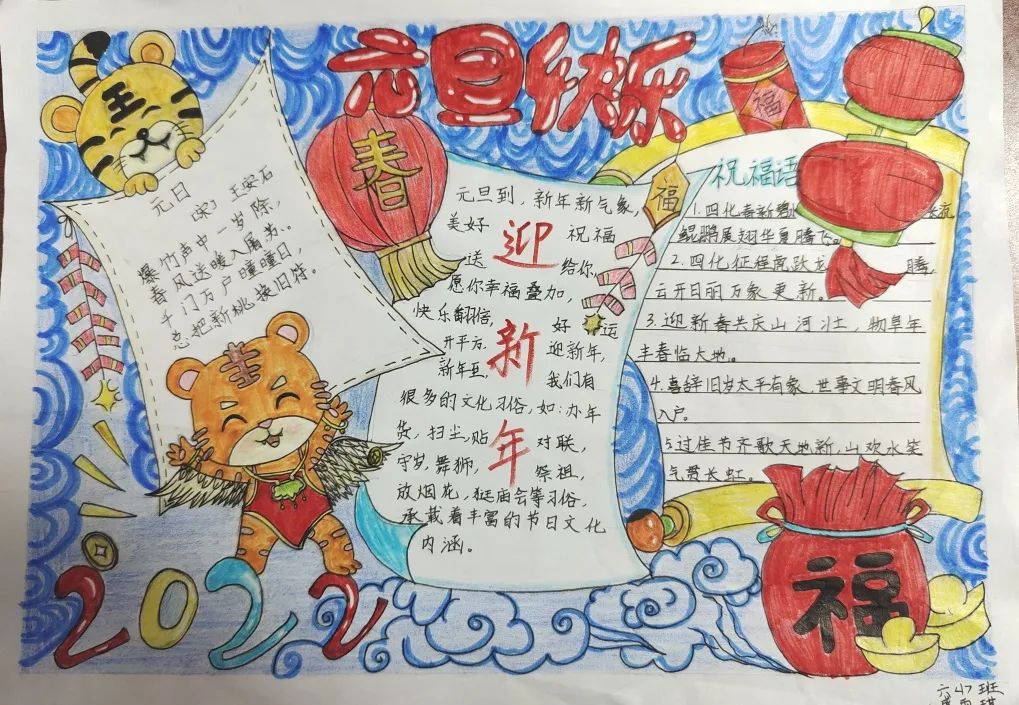 元旦快乐
元日
宋 王安石
爆竹声中一岁除,
春风送暖入屠苏。
千门万户曈曈日,
总把新桃换旧符。
春
福
福
元旦到,新年新气象,
美好 祝福
送 给你,
愿你幸福叠加,
快乐翻倍, 好运
开平方, 迎新年,
新年至, 我们有
很多的文化习俗,如:办年
货,扫尘,贴 对联,
守岁,舞狮, 祭祖,
放烟花,逛庙会等习俗,
承载着丰富的节日文化
内涵。
迎
新
年
祝福语
1.四化春新碧
鲲鹏展翅华夏腾飞。
2.四化征程虎跃龙 腾,
云开日丽万象更新。
3.迎新春共庆山河壮,物阜年
丰春临大地。
4.喜辞旧岁太平有象,世事文明春风
入户。
5.过佳节齐歌天地新,山欢水笑
气贯长虹。
2022
福
王
王